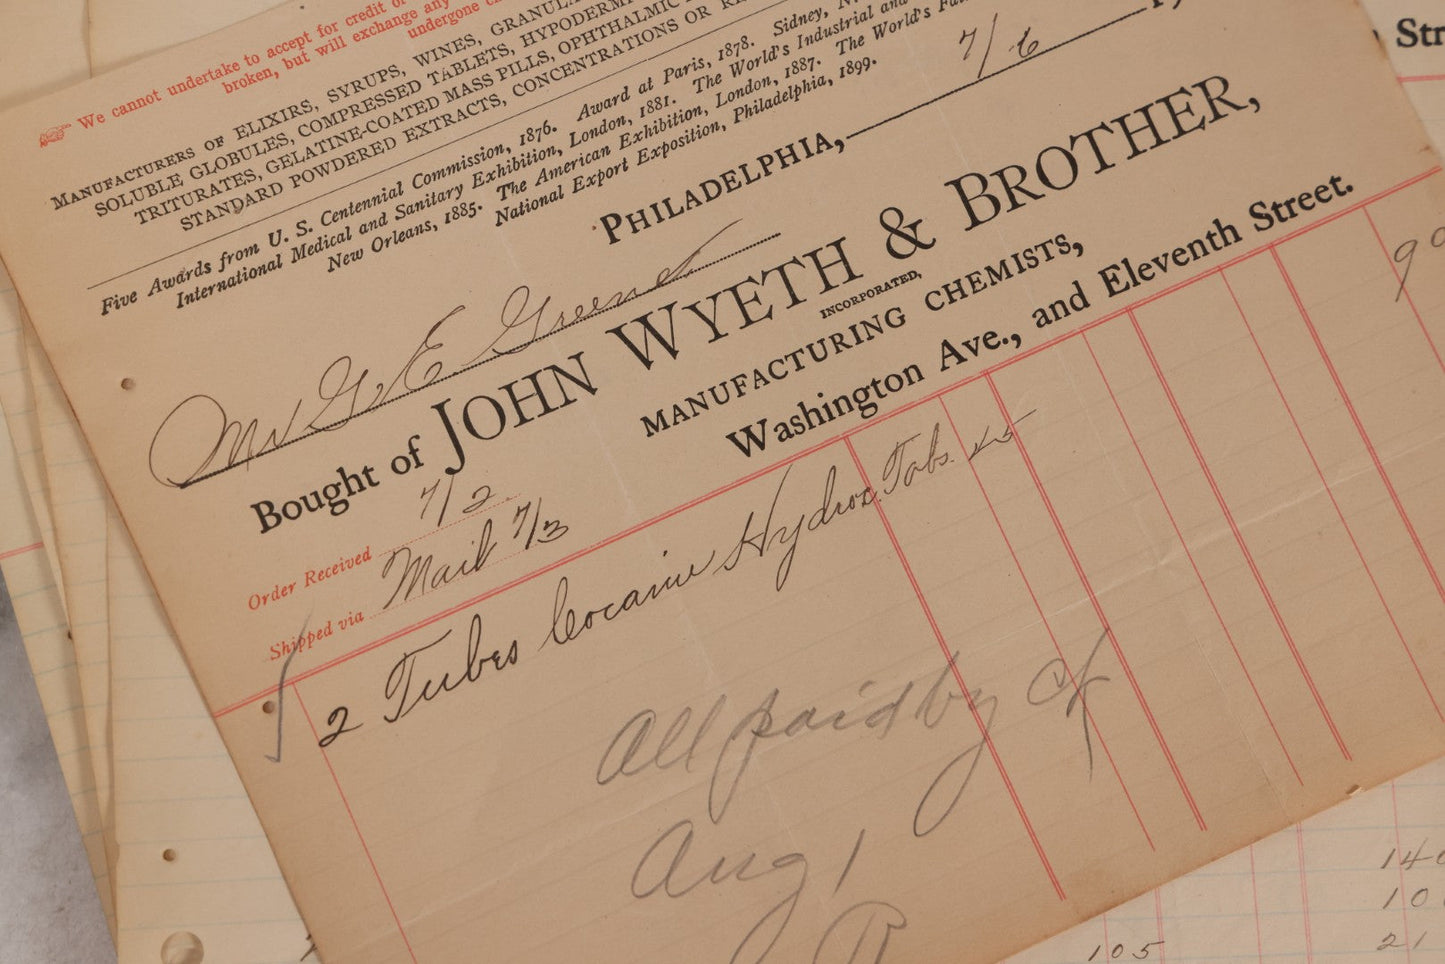 We cannot undertake to accept for credit or
broken, but will exchange any
undergone
MANUFACTURERS OF ELIXIRS, SYRUPS, WINES,
SOLUBLE GLOBULES, COMPRESSED TABLETS,
TRITURATES, GELATINE-COATED MASS PILLS, OPHTHALMIC
STANDARD POWDERED EXTRACTS, CONCENTRATIONS OR
Five Awards from U. S. Centennial Commission, 1876. Award at Paris, 1878. Sidney,
International Medical and Sanitary Exhibition, London, 1881. The World's Industrial and
New Orleans, 1885. The American Exhibition, London, 1887. The World's
National Export Exposition, Philadelphia, 1899.
PHILADELPHIA, 7/6
G. E. Greene
Bought of JOHN WYETH & BROTHER,
INCORPORATED,
MANUFACTURING CHEMISTS,
Washington Ave., and Eleventh Street.
Order Received 7/2
Shipped via Mail 7/3
2 Tubes Cocaine Hydroc. Tabs. 45 90
All paid by ck
Aug 1
Str
105
21